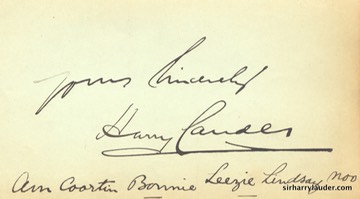 yours Sincerely
Harry Lauder
Am Coortin Bonnie Leezie Lindsay noo
sirharrylauder.com